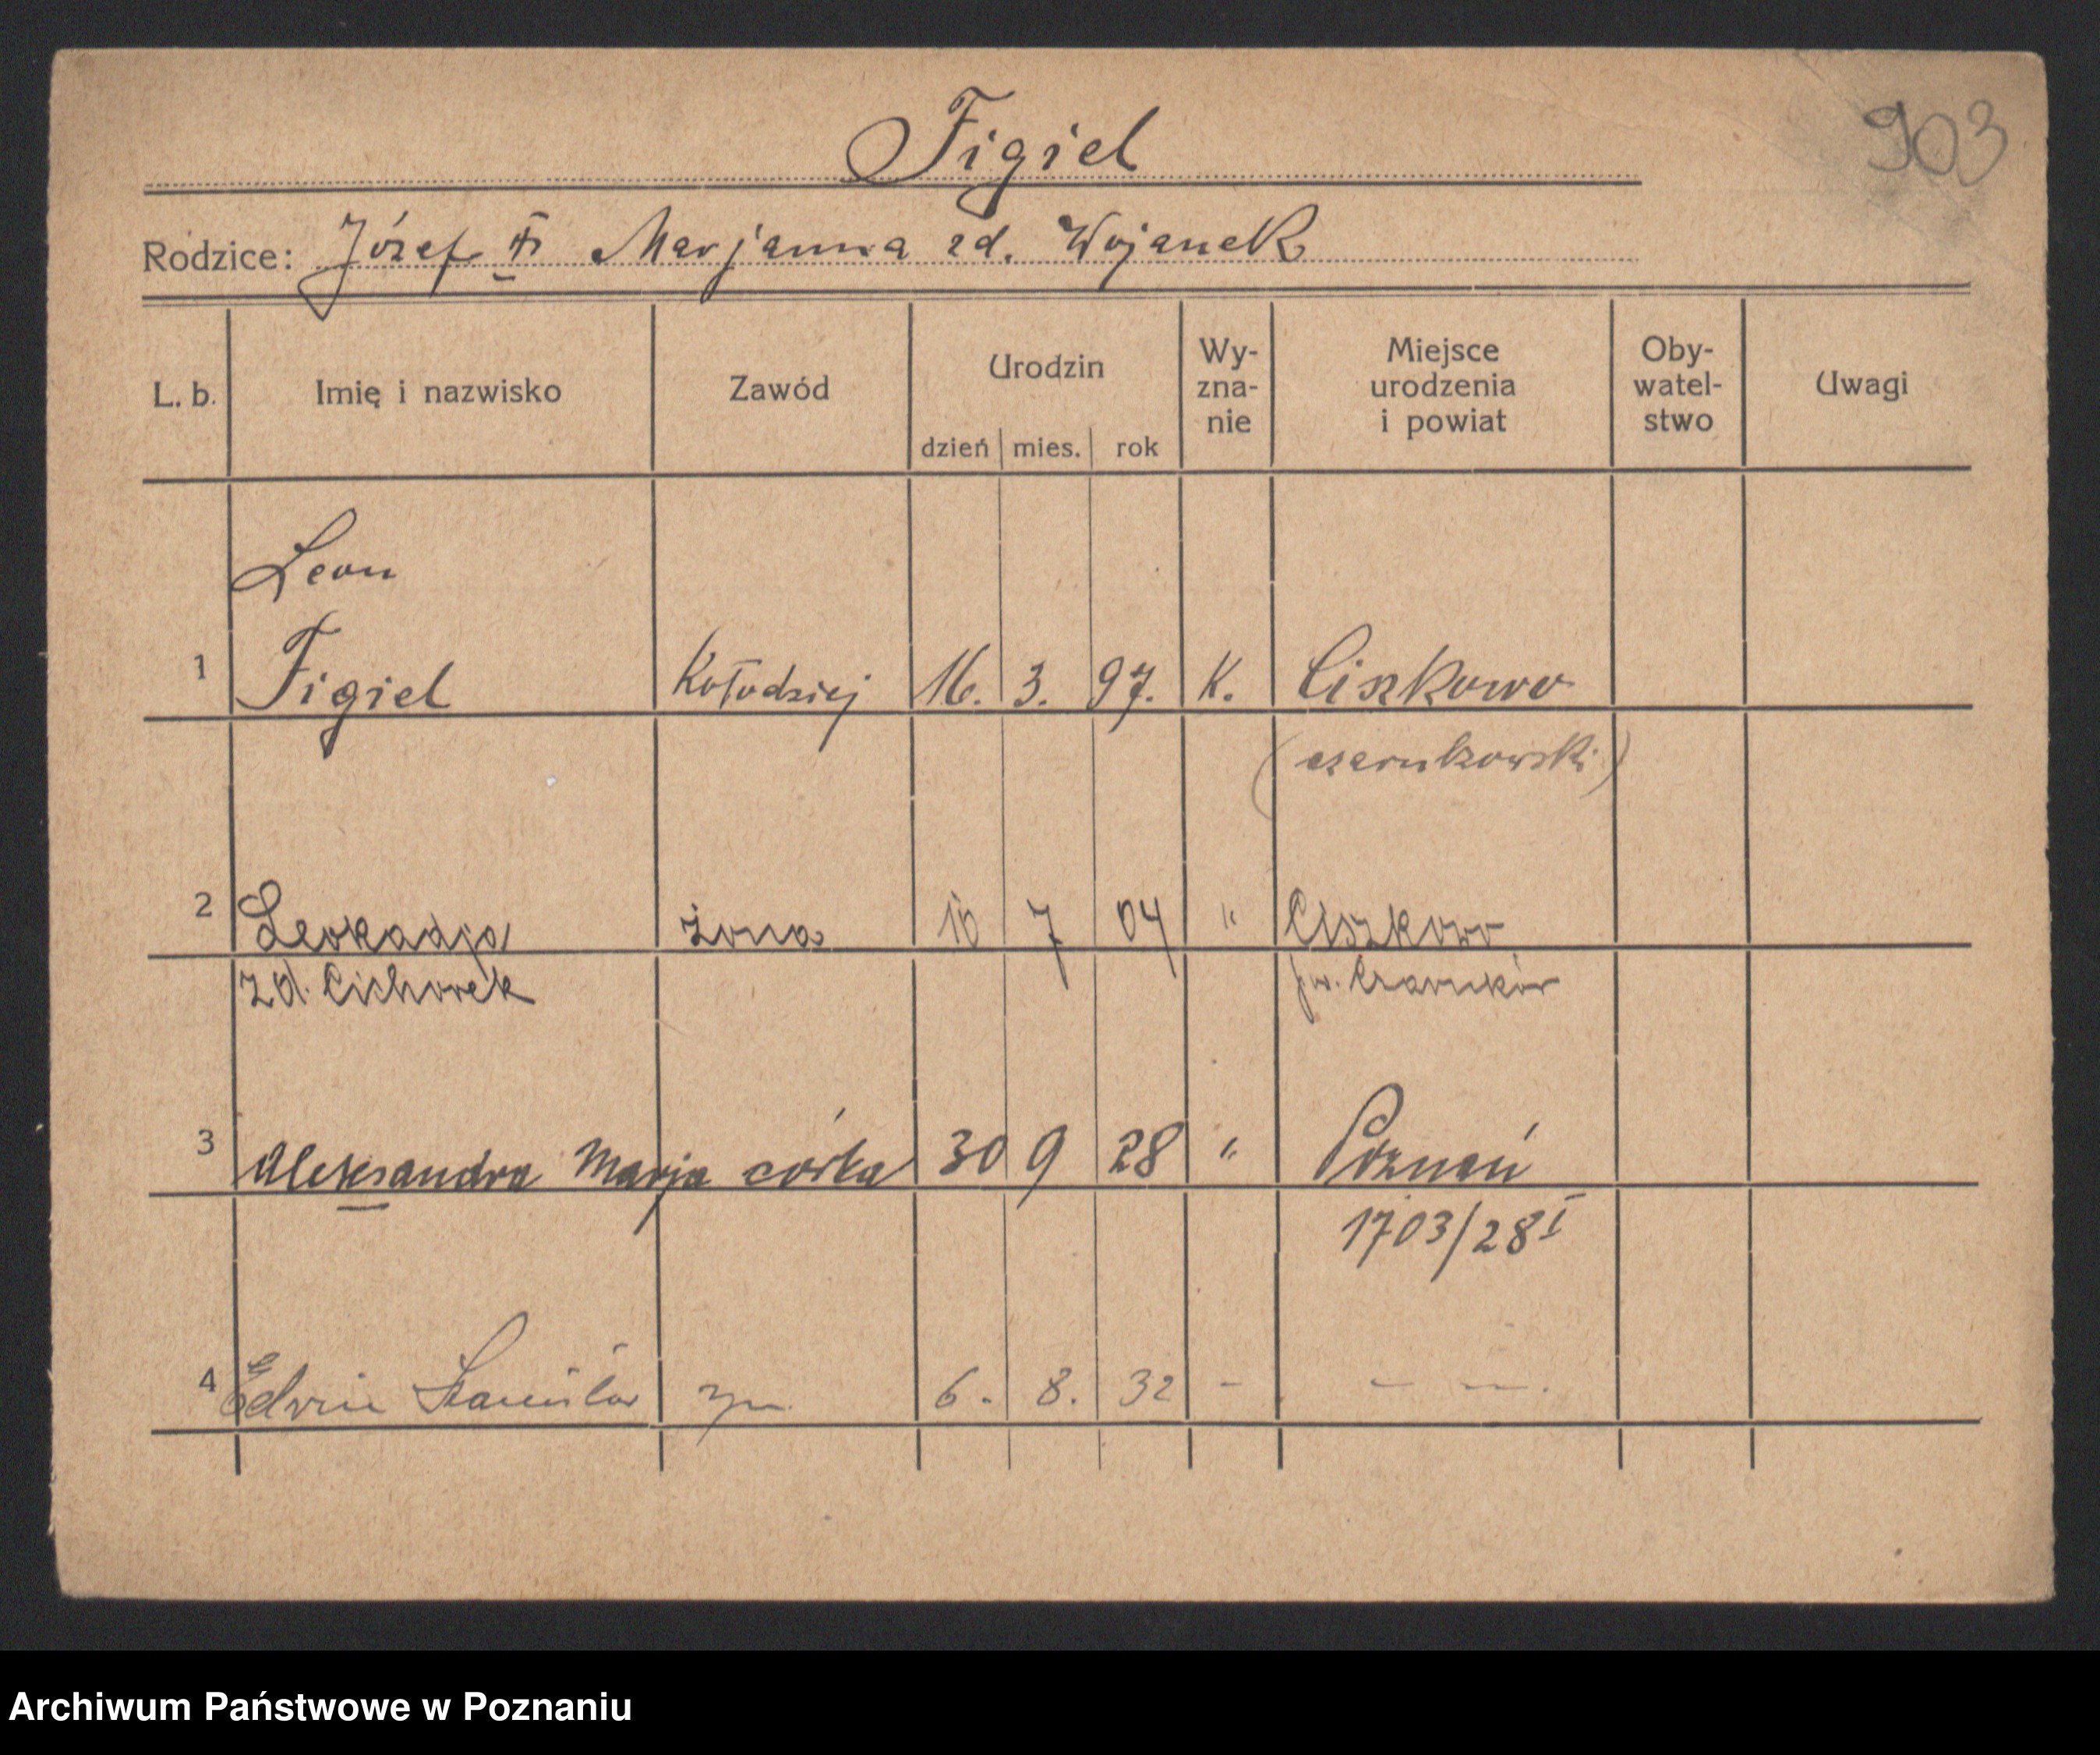 Figiel
903
Rodzice: Józef Marjanna zd. Wojanek
L. b. Imię i nazwisko Zawód Urodzin dzień mies. rok Wy-zna-nie Miejsce urodzenia i powiat Oby-watel-stwo Uwagi
Leon
1 Figiel Kołodziej 16. 3. 97. K. Ciszkowo
(czarnkowski)
2 Leokadja żona 10 7 04 " Ciszkowo
zd. Cichorek pw. Czarnków
3 Aleksandra Marja córka 30 9 28 " Poznań
1703/28 I
4 Edwin Stanisław syn 6. 8. 32 - - -
Archiwum Państwowe w Poznaniu